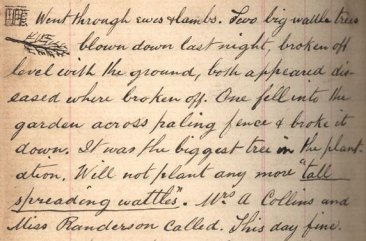 Went through ewes & lambs. Two big wattle trees
blown down last night, broken off
level with the ground, both appeared dis-
eased where broken off. One fell into the
garden across paling fence & broke it
down. It was the biggest tree in the plant-
ation. Will not plant any more "tall
spreading wattles". Mrs A Collins and
Miss Randerson called. This day fine.